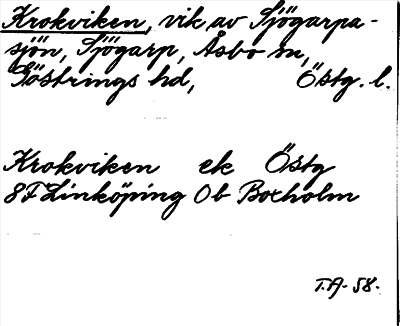 Krokviken, vik av Sjögarpa-
sjön, Sjögarp, Åsbo sn,
Göstrings hd, Östg. l.
Krokviken ek Östg
8F Linköping Ob Boxholm
T.A- 58.